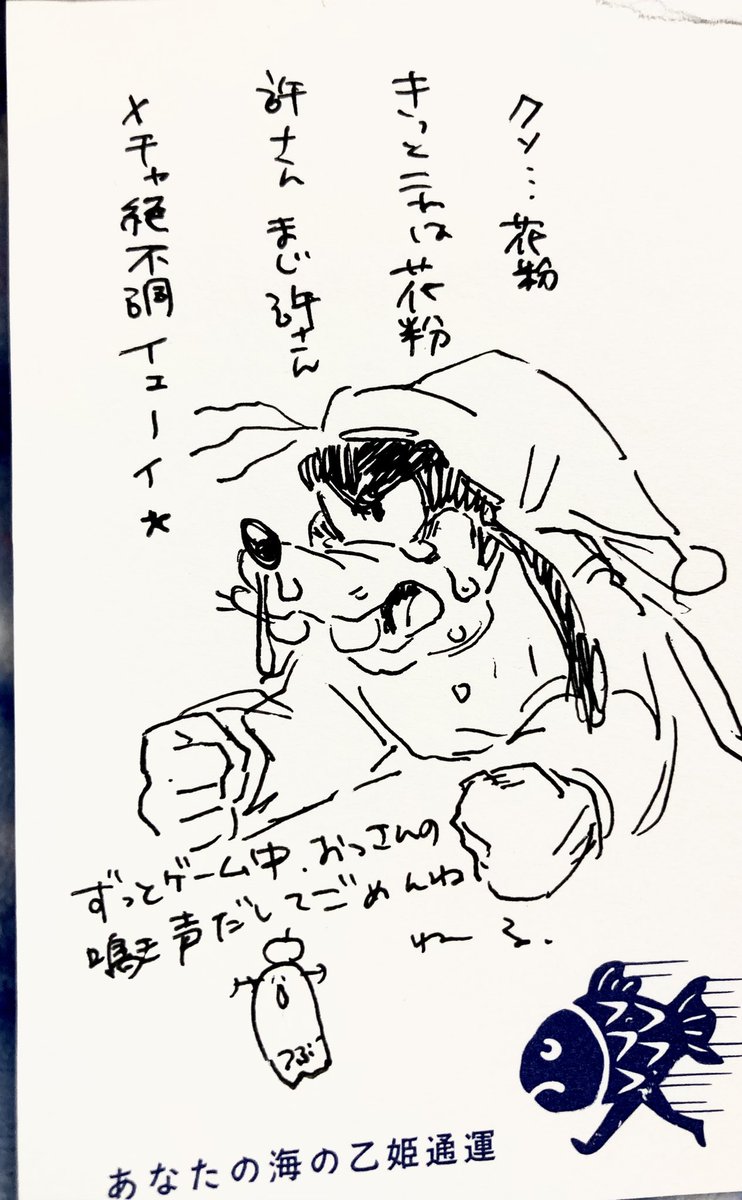 クソ…花粉
きっとこれは花粉
許さん まじ許さん
メチャ絶不調 イェーイ★
ずっとゲーム中、おっさんの
鳴き声だしてごめんね
ねーる.
つぶ
あなたの海の乙姫通運